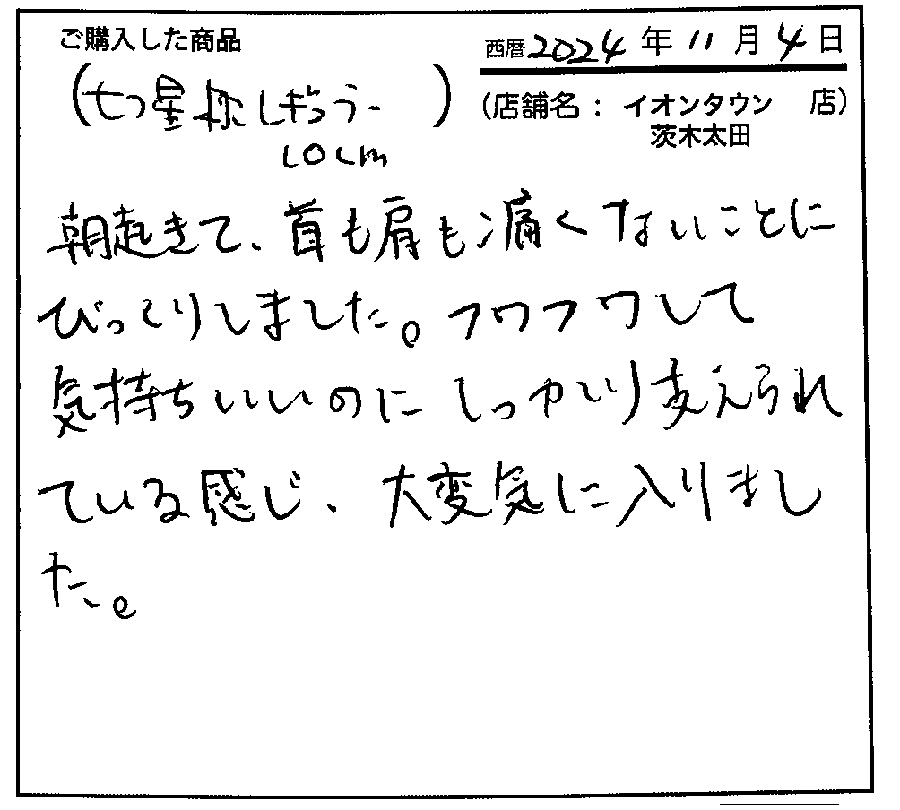 ご購入した商品
西暦2024年11月4日
(七つ星枕レギュラー)
10cm
(店舗名：イオンタウン 店)
茨木太田
朝起きて、首も肩も痛くないことに
びっくりしました。フワフワして
気持ちいいのにしっかり支えられ
ている感じ、大変気に入りまし
た。